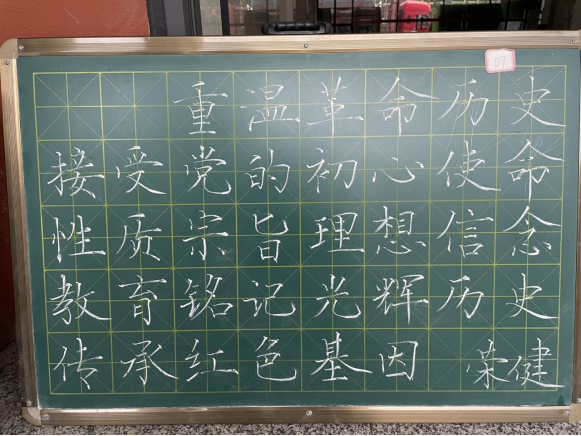 07
重温革命历史
接受党的初心使命
性质宗旨理想信念
教育铭记光辉历史
传承红色基因 荣健